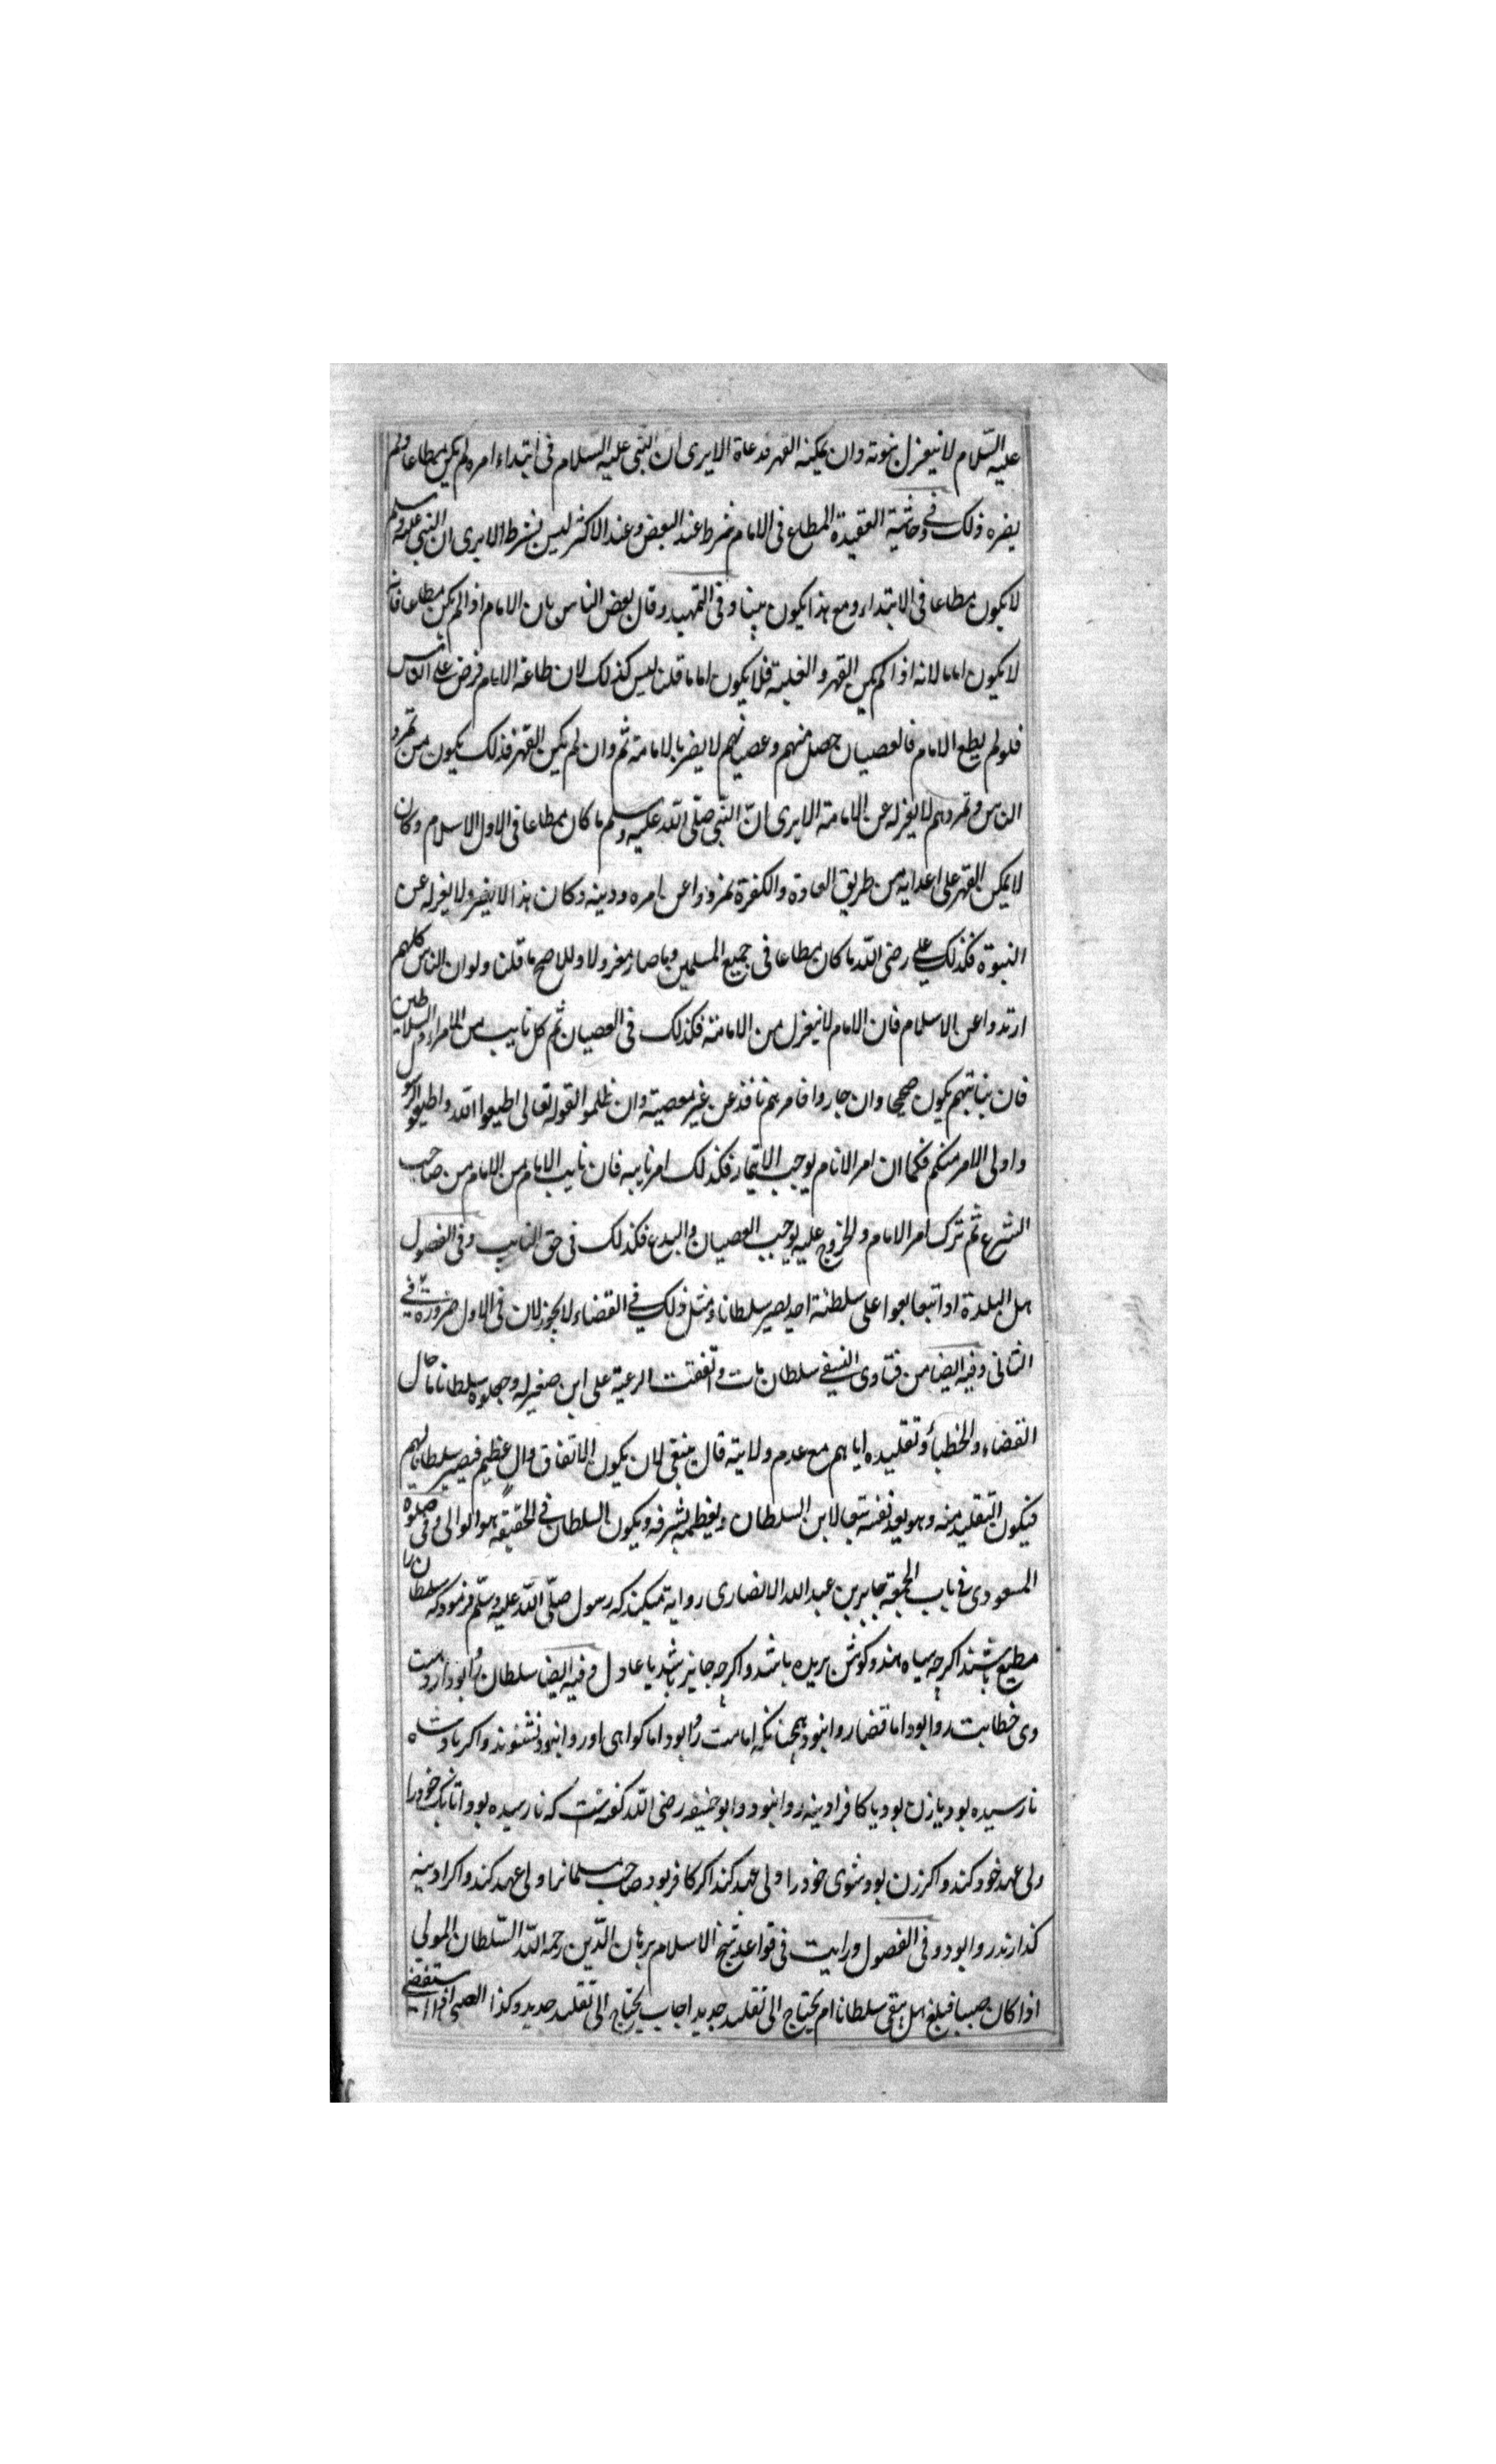 عليه السّلام لا ينعزل بموته وان يمكنه القهر فدعاة الا يرى ان النّبى عليه السّلام فى ابتداء امره لم يكن مطاعا ولم
يضره ذلك وفى حاشية العقيدة المطاع فى الامام شرط عند البعض وعند الاكثر ليس بشرط الا يرى ان النبى عليه وسلم
لا يكون مطاعا فى الابتداء ومع هذا يكون نبينا وفى التمهيد وقال بعض الناس بان الامام اذا لم يكن مطاعا فانه
لا يكون اماما لانه اذا لم يكن القهر والغلبة فلا يكون اماما قلنا ليس كذلك لان طاعة الامام فرض على الناس
فلو لم يطع الامام فالعصيان حصل منهم وعصيانهم لا يضر بالامامة ثم وان لم يكن القهر فذلك يكون من تمرد
الناس وتمردهم لا يعزله عن الامامة الا يرى انّ النّبى صلّى الله عليه وسلم ما كان مطاعا فى الاول الاسلام وكان
لا يمكن القهر على اعدايه من طريق العادة والكفرة تمردوا عن امره ودينه وكان هذا لا يضر ولا يعزله عن
النبوة فكذلك على رضى الله ما كان مطاعا فى جميع المسلمين وما صار معزولا وللاصح ما قلنا ولو ان الناس كلهم
ارتدوا عن الاسلام فان الامام لا ينعزل من الامامة فكذلك فى العصيان ثم كل نايب من الامراء والسلاطين
فان نيابتهم يكون صحيحا وان جاروا فامرهم نافذ عن غير معصية وان ظلموا لقوله تعالى اطيعوا الله واطيعوا الرسول
واولى الامر منكم فكما ان امر الامام يوجب الايتمار فكذلك امر نايبه فان نايب الامام من الامام من صاحب
الشرع ثم ترك امر الامام والخروج عليه يوجب العصيان والبدع فكذلك فى حق النايب وفى الفصول
اهل البلدة اذا تبايعوا على سلطنة احد يصير سلطانا ومثل ذلك فى القضاء لا يجوز لان فى الاول ضرورة فى
الثانى وفيه ايضا من فتاوى النسفى سلطان مات واتفقت الرعية على ابن صغير له وجعلوه سلطانا ما حال
القضاء والخطباء وتقليده اياهم مع عدم ولايته قال ينبغى لان يكون الاتفاق وال عظيم فيصير سلطانا لهم
فيكون التقليد منه وهو يعد نفسه تبعا لابن السلطان ويعظمه بشرفه ويكون السلطان فى الحقيقة هو الوالى وفى صلوة
المسعودى فى باب الجمعة جابر بن عبد الله الانصارى رواية ميكند كه رسول صلّى الله عليه وسلّم فرمود كه سلطان را
مطيع باشند اكرچه سياه هندو كوش بريده باشد واكرچه جاير باشد يا عادل وفيه ايضا سلطان را بود
وى خطابت روا بود اما قضا روا نبود همچنانكه امامت را بود اما كواهى او روا نبود نشنوند واكر پادشاه
نارسيده بود يا زن بود يا كافر ادينه روا نبود وابو حنيفه رضى الله كفته است كه نارسيده بود اتابك خود را
ولى عهد خود كند واكر زن بود شوى خود را ولى عهد كند اكر كافر بود صاحب مسلمانرا ولى عهد كند واكر ادينه
كذارند روا بود وفى الفصول ورايت فى فوايد شيخ الاسلام برهان الدّين رحمه الله السّلطان المولى
اذا كان صبيا فبلغ هل يبقى سلطانا ام يحتاج الى تقليد جديد اجاب يحتاج الى تقليد جديد وكذا الصبى اذا استقضى